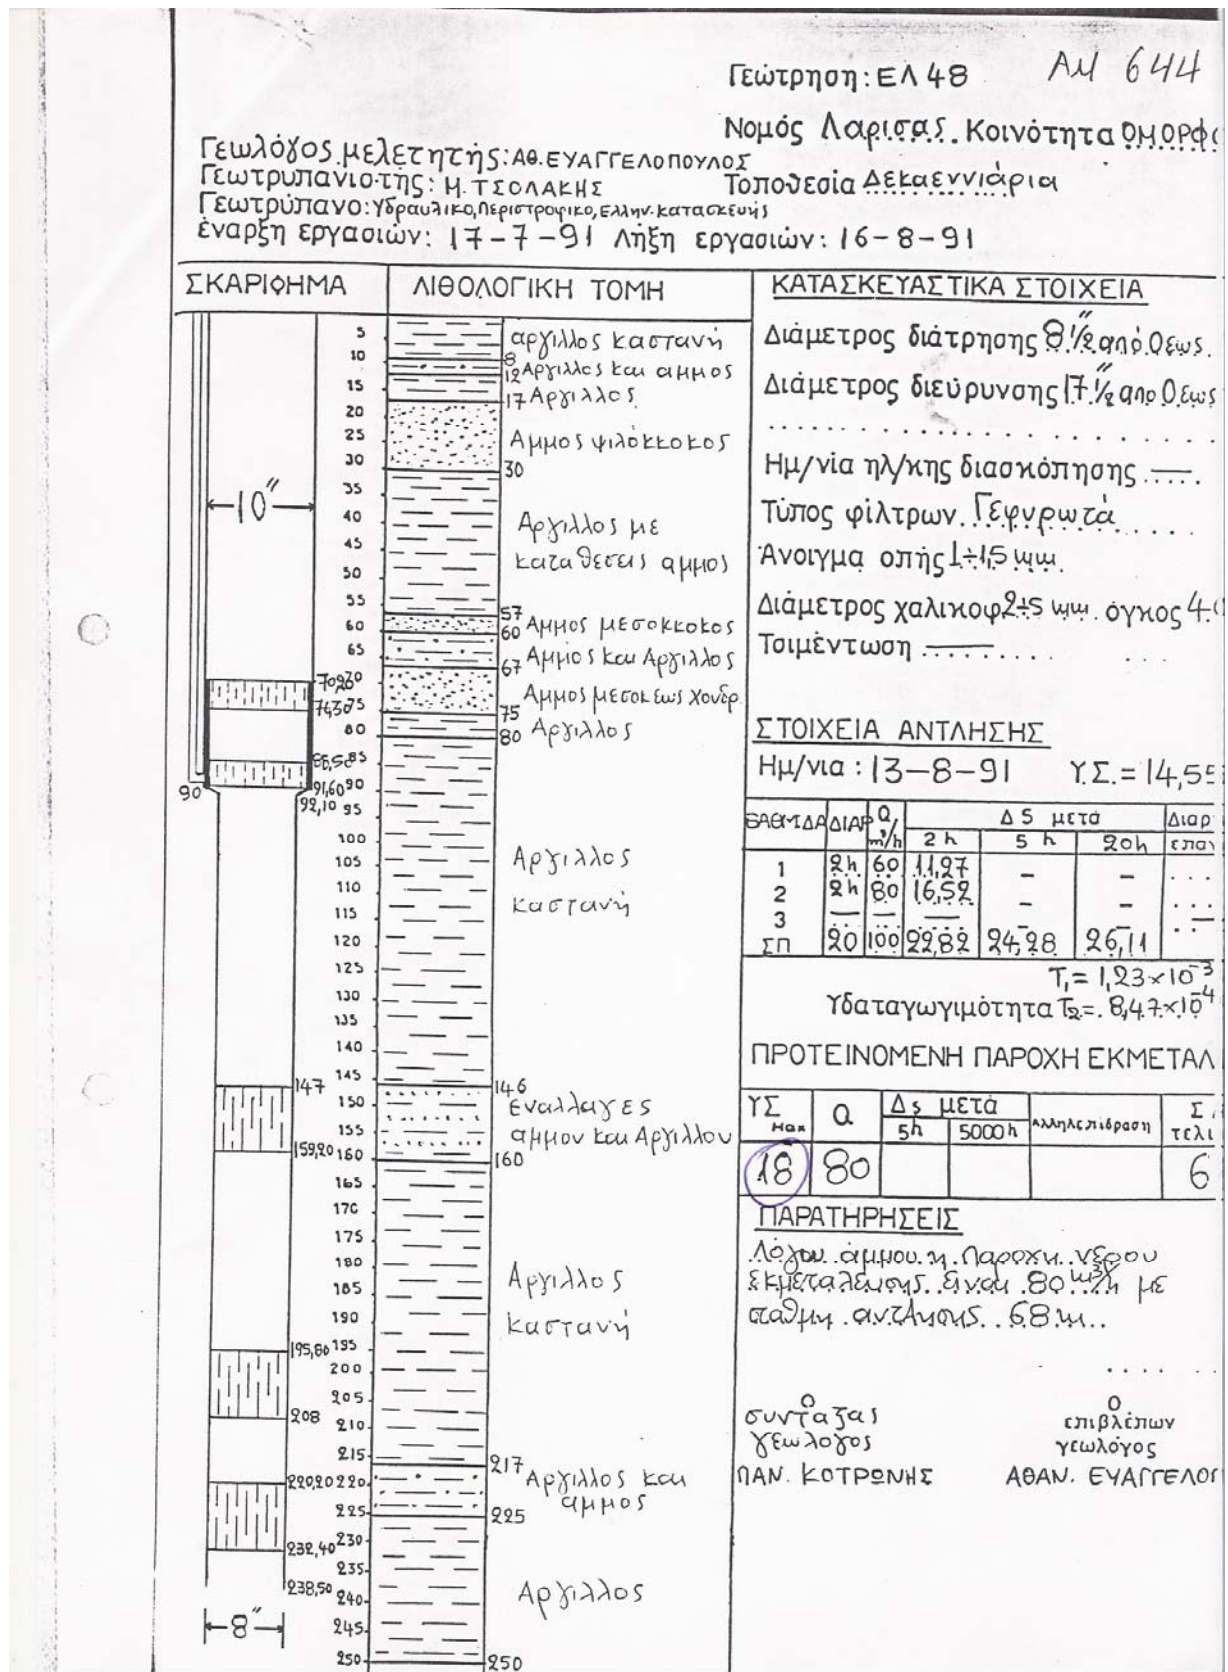 Γεώτρηση: ΕΛ 48 ΑΜ 644
Νομός Λαρισας. Κοινότητα ΟΜΟΡΦΟ
Γεωλόγος μελετητής: ΑΘ. ΕΥΑΓΓΕΛΟΠΟΥΛΟΣ
Γεωτρυπανιστής: Η. ΤΣΟΛΑΚΗΣ
Τοποθεσία Δεκαεννιάρια
Γεωτρύπανο: Υδραυλικο, Περιστροφικο, Ελλην. κατασκευής
έναρξη εργασιών: 17-7-91 Λήξη εργασιών: 16-8-91
ΣΚΑΡΙΦΗΜΑ
10"
70,20
74,30
91,60
90
92,10
147
159,20
195,80
208
220,20
232,40
238,50
8"
ΛΙΘΟΛΟΓΙΚΗ ΤΟΜΗ
5
10
15
20
25
30
35
40
45
50
55
60
65
70
75
80
85
90
95
100
105
110
115
120
125
130
135
140
145
150
155
160
165
170
175
180
185
190
195
200
205
210
215
220
225
230
235
240
245
250
αργιλλος καστανή
8
Αργιλλος και αμμος
12
Αργιλλος
17
Αμμος ψιλόκκοκος
30
Αργιλλος με
καταθεσεις αμμος
57
Αμμος μεσοκκοκος
60
Αμμος και Αργιλλος
67
Αμμος μεσοκ εως χονδρ.
75
Αργιλλος
80
Αργιλλος
καστανή
146
Εναλλαγες
αμμου και Αργιλλου
160
Αργιλλος
καστανή
217
Αργιλλος και
αμμος
225
Αργιλλος
250
ΚΑΤΑΣΚΕΥΑΣΤΙΚΑ ΣΤΟΙΧΕΙΑ
Διάμετρος διάτρησης 8 1/2" από 0 εως
Διάμετρος διεύρυνσης 17 1/2" απο 0 εως
Ημ/νία ηλ/κης διασκόπησης —
Τύπος φίλτρων Γεφυρωτά
Άνοιγμα οπής 1÷1,5 mm.
Διάμετρος χαλικοφ 2÷5 mm. όγκος 4.
Τσιμέντωση —
ΣΤΟΙΧΕΙΑ ΑΝΤΛΗΣΗΣ
Ημ/νια: 13-8-91 Υ.Σ. = 14,55
ΒΑΘΜΙΔΑ ΔΙΑΡ Q m³/h ΔS μετά Διαρ
2h 5h 20h επαν
1 2h 60 11,27 – –
2 2h 80 16,52 – –
3 — — — – – —
ΣΠ 20 100 22,82 24,28 26,11
T₁= 1,23×10⁻³
Υδαταγωγιμότητα T₂= 8,47×10⁻⁴
ΠΡΟΤΕΙΝΟΜΕΝΗ ΠΑΡΟΧΗ ΕΚΜΕΤΑΛ
ΥΣ Max Q Δs μετά αλληλεπίδραση Σ
5h 5000h τελι
18 80 6
ΠΑΡΑΤΗΡΗΣΕΙΣ
Λόγου άμμου η παροχη νερου
εκμεταλευσης είναι 80 m³/h με
σταθμη αντλησης 68 m..
Ο
συνταξας
γεωλογος
ΠΑΝ. ΚΟΤΡΩΝΗΣ
Ο
επιβλέπων
γεωλόγος
ΑΘΑΝ. ΕΥΑΓΓΕΛΟΠ